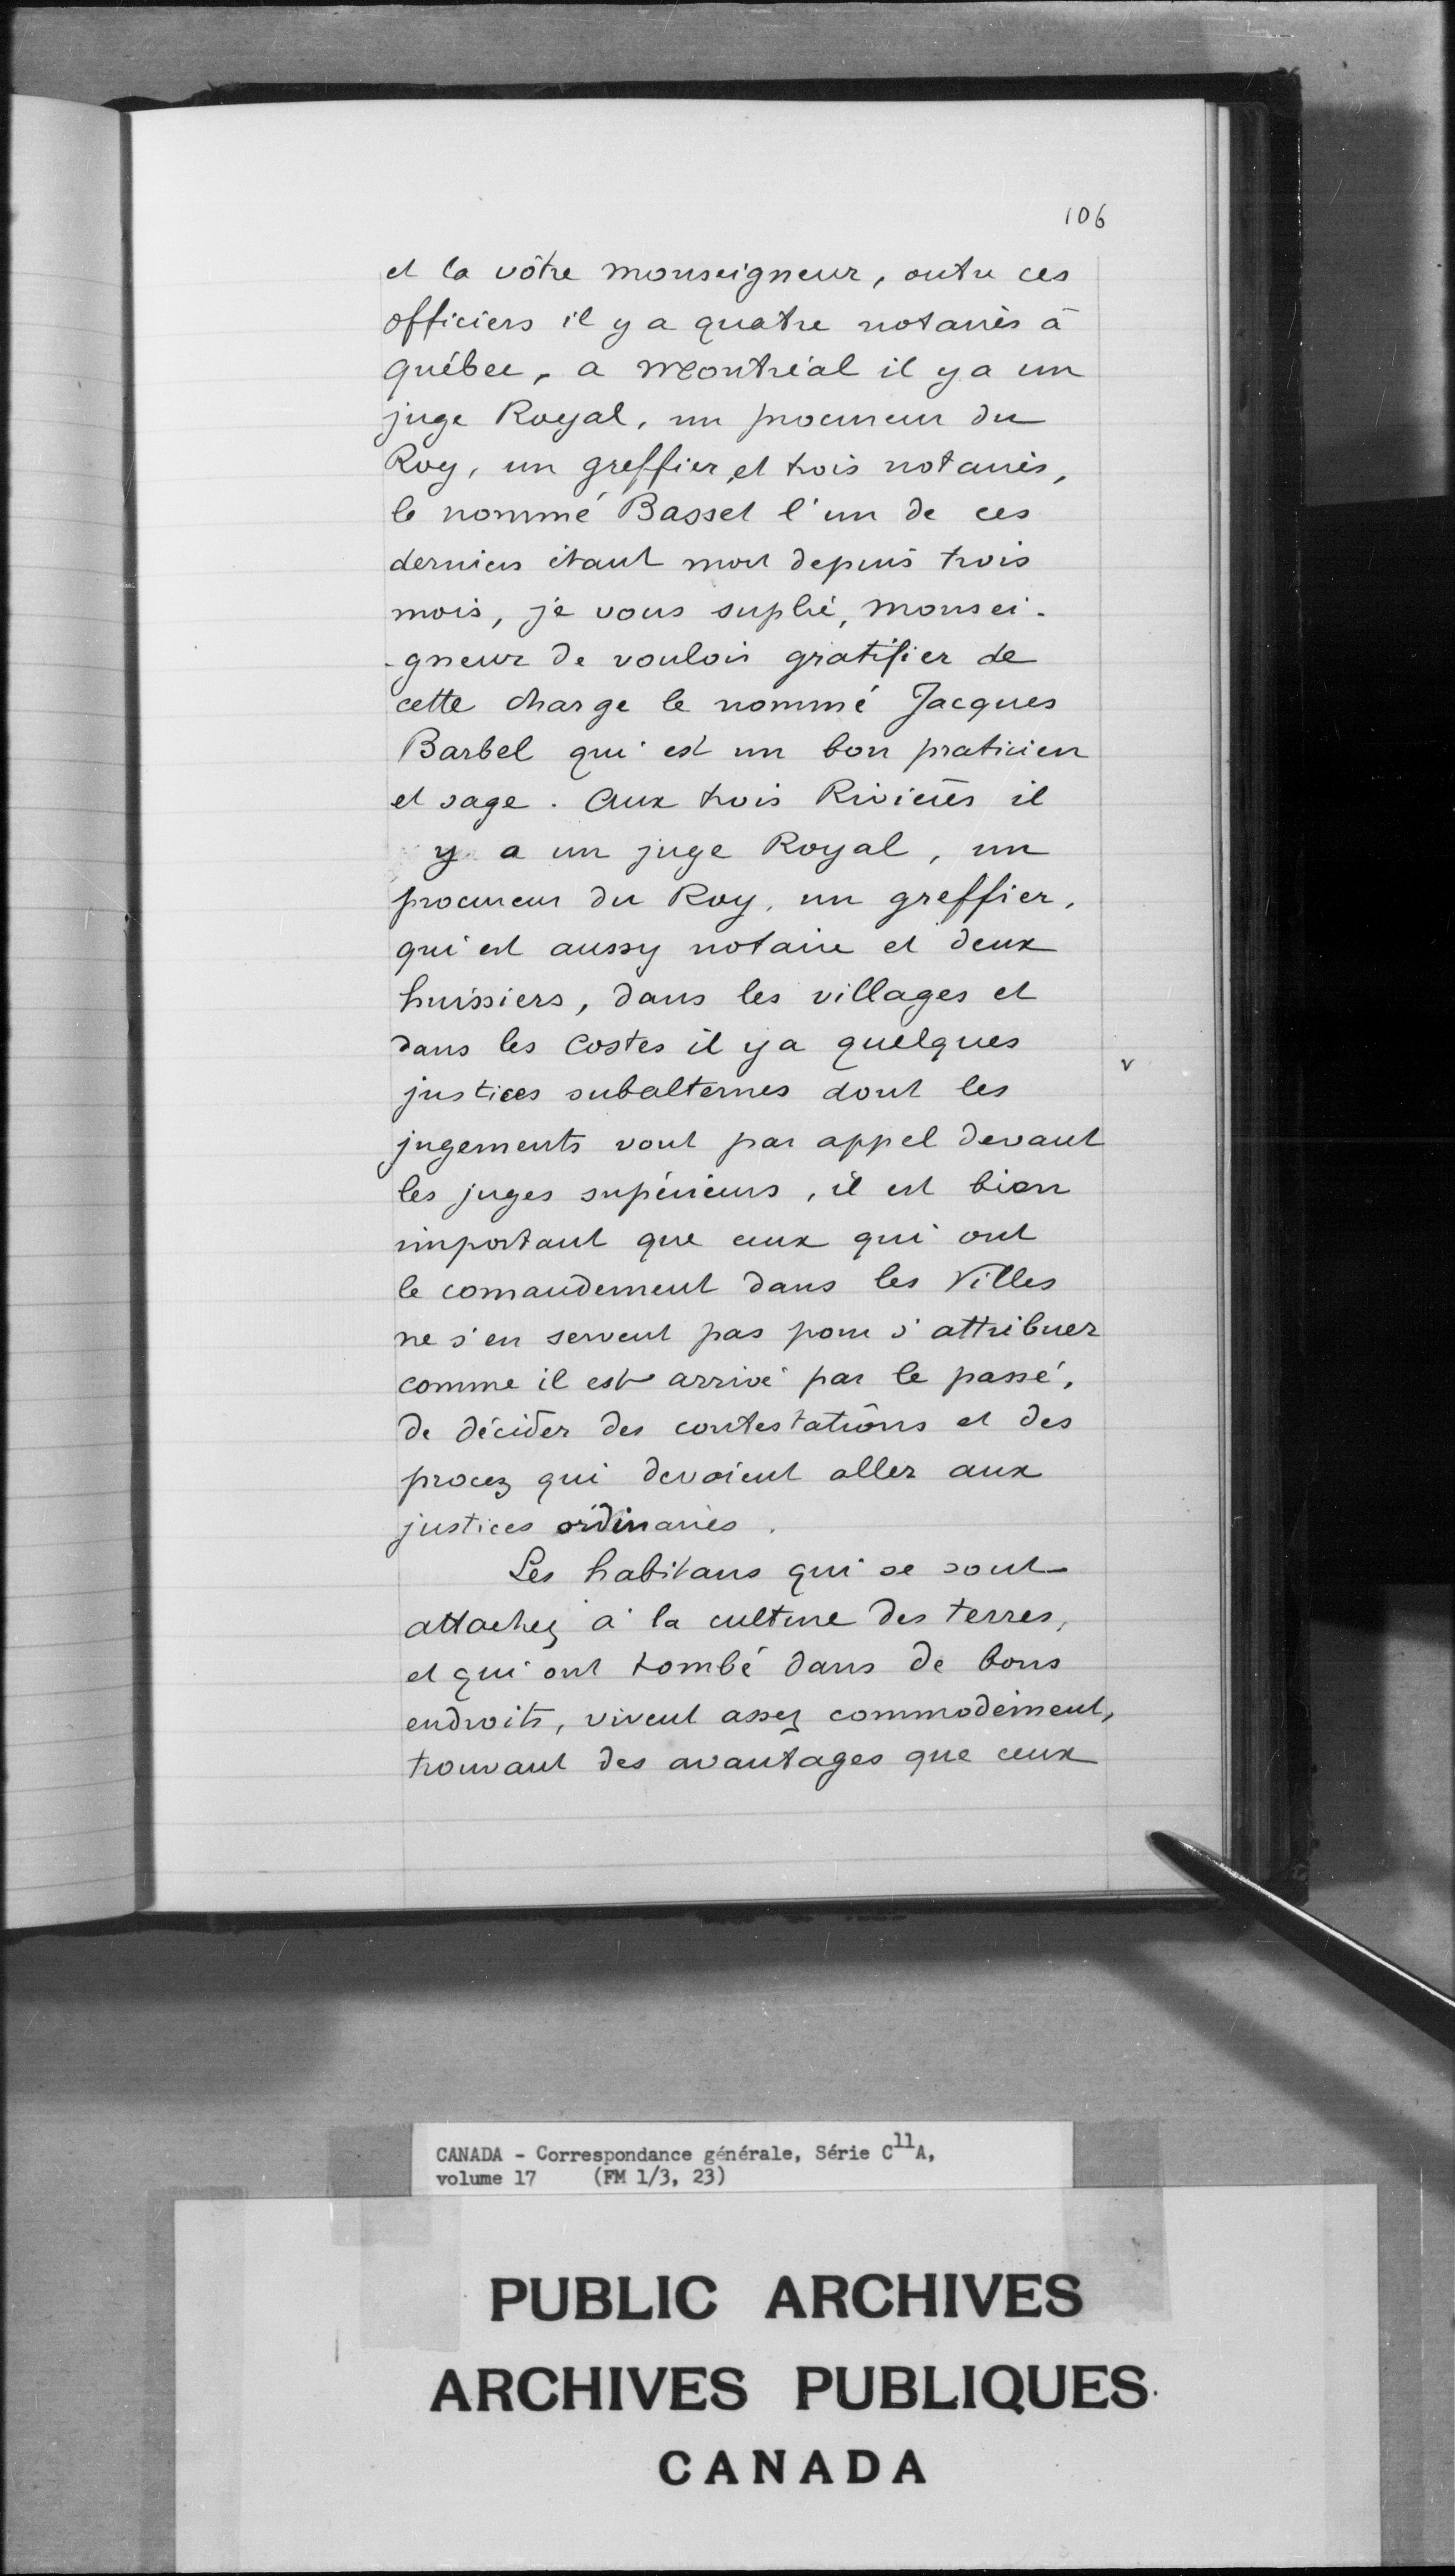 106
et la vôtre monseigneur, outre ces
officiers il y a quatre notaires à
québec, a Montréal il y a un
juge Royal, un procureur du
Roy, un greffier, et trois notaires,
le nommé Basset l'un de ces
derniers étant mort depuis trois
mois, je vous suplie, Monsei-
-gneur de vouloir gratifier de
cette charge le nommé Jacques
Barbel qui est un bon praticien
et sage. Aux trois Rivieres il
y a un juge Royal, un
procureur du Roy, un greffier,
qui est aussy notaire et deux
huissiers, dans les villages et
dans les Costes il y a quelques
v
justices subalternes dont les
jugements vont par appel devant
les juges supérieurs, il est bien
important que ceux qui ont
le comandement dans les Villes
ne s'en servent pas pour s'attribuer
comme il est arrivé par le passé,
de décider des contestations et des
procez qui devoient aller aux
justices ordinaires.
Les habitans qui se sont
attachez à la culture des terres,
et qui ont tombé dans de bons
endroits, vivent assez commodément,
trouvant des avantages que ceux
CANADA - Correspondance générale, Série C11A,
volume 17 (FM 1/3, 23)
PUBLIC ARCHIVES
ARCHIVES PUBLIQUES
CANADA